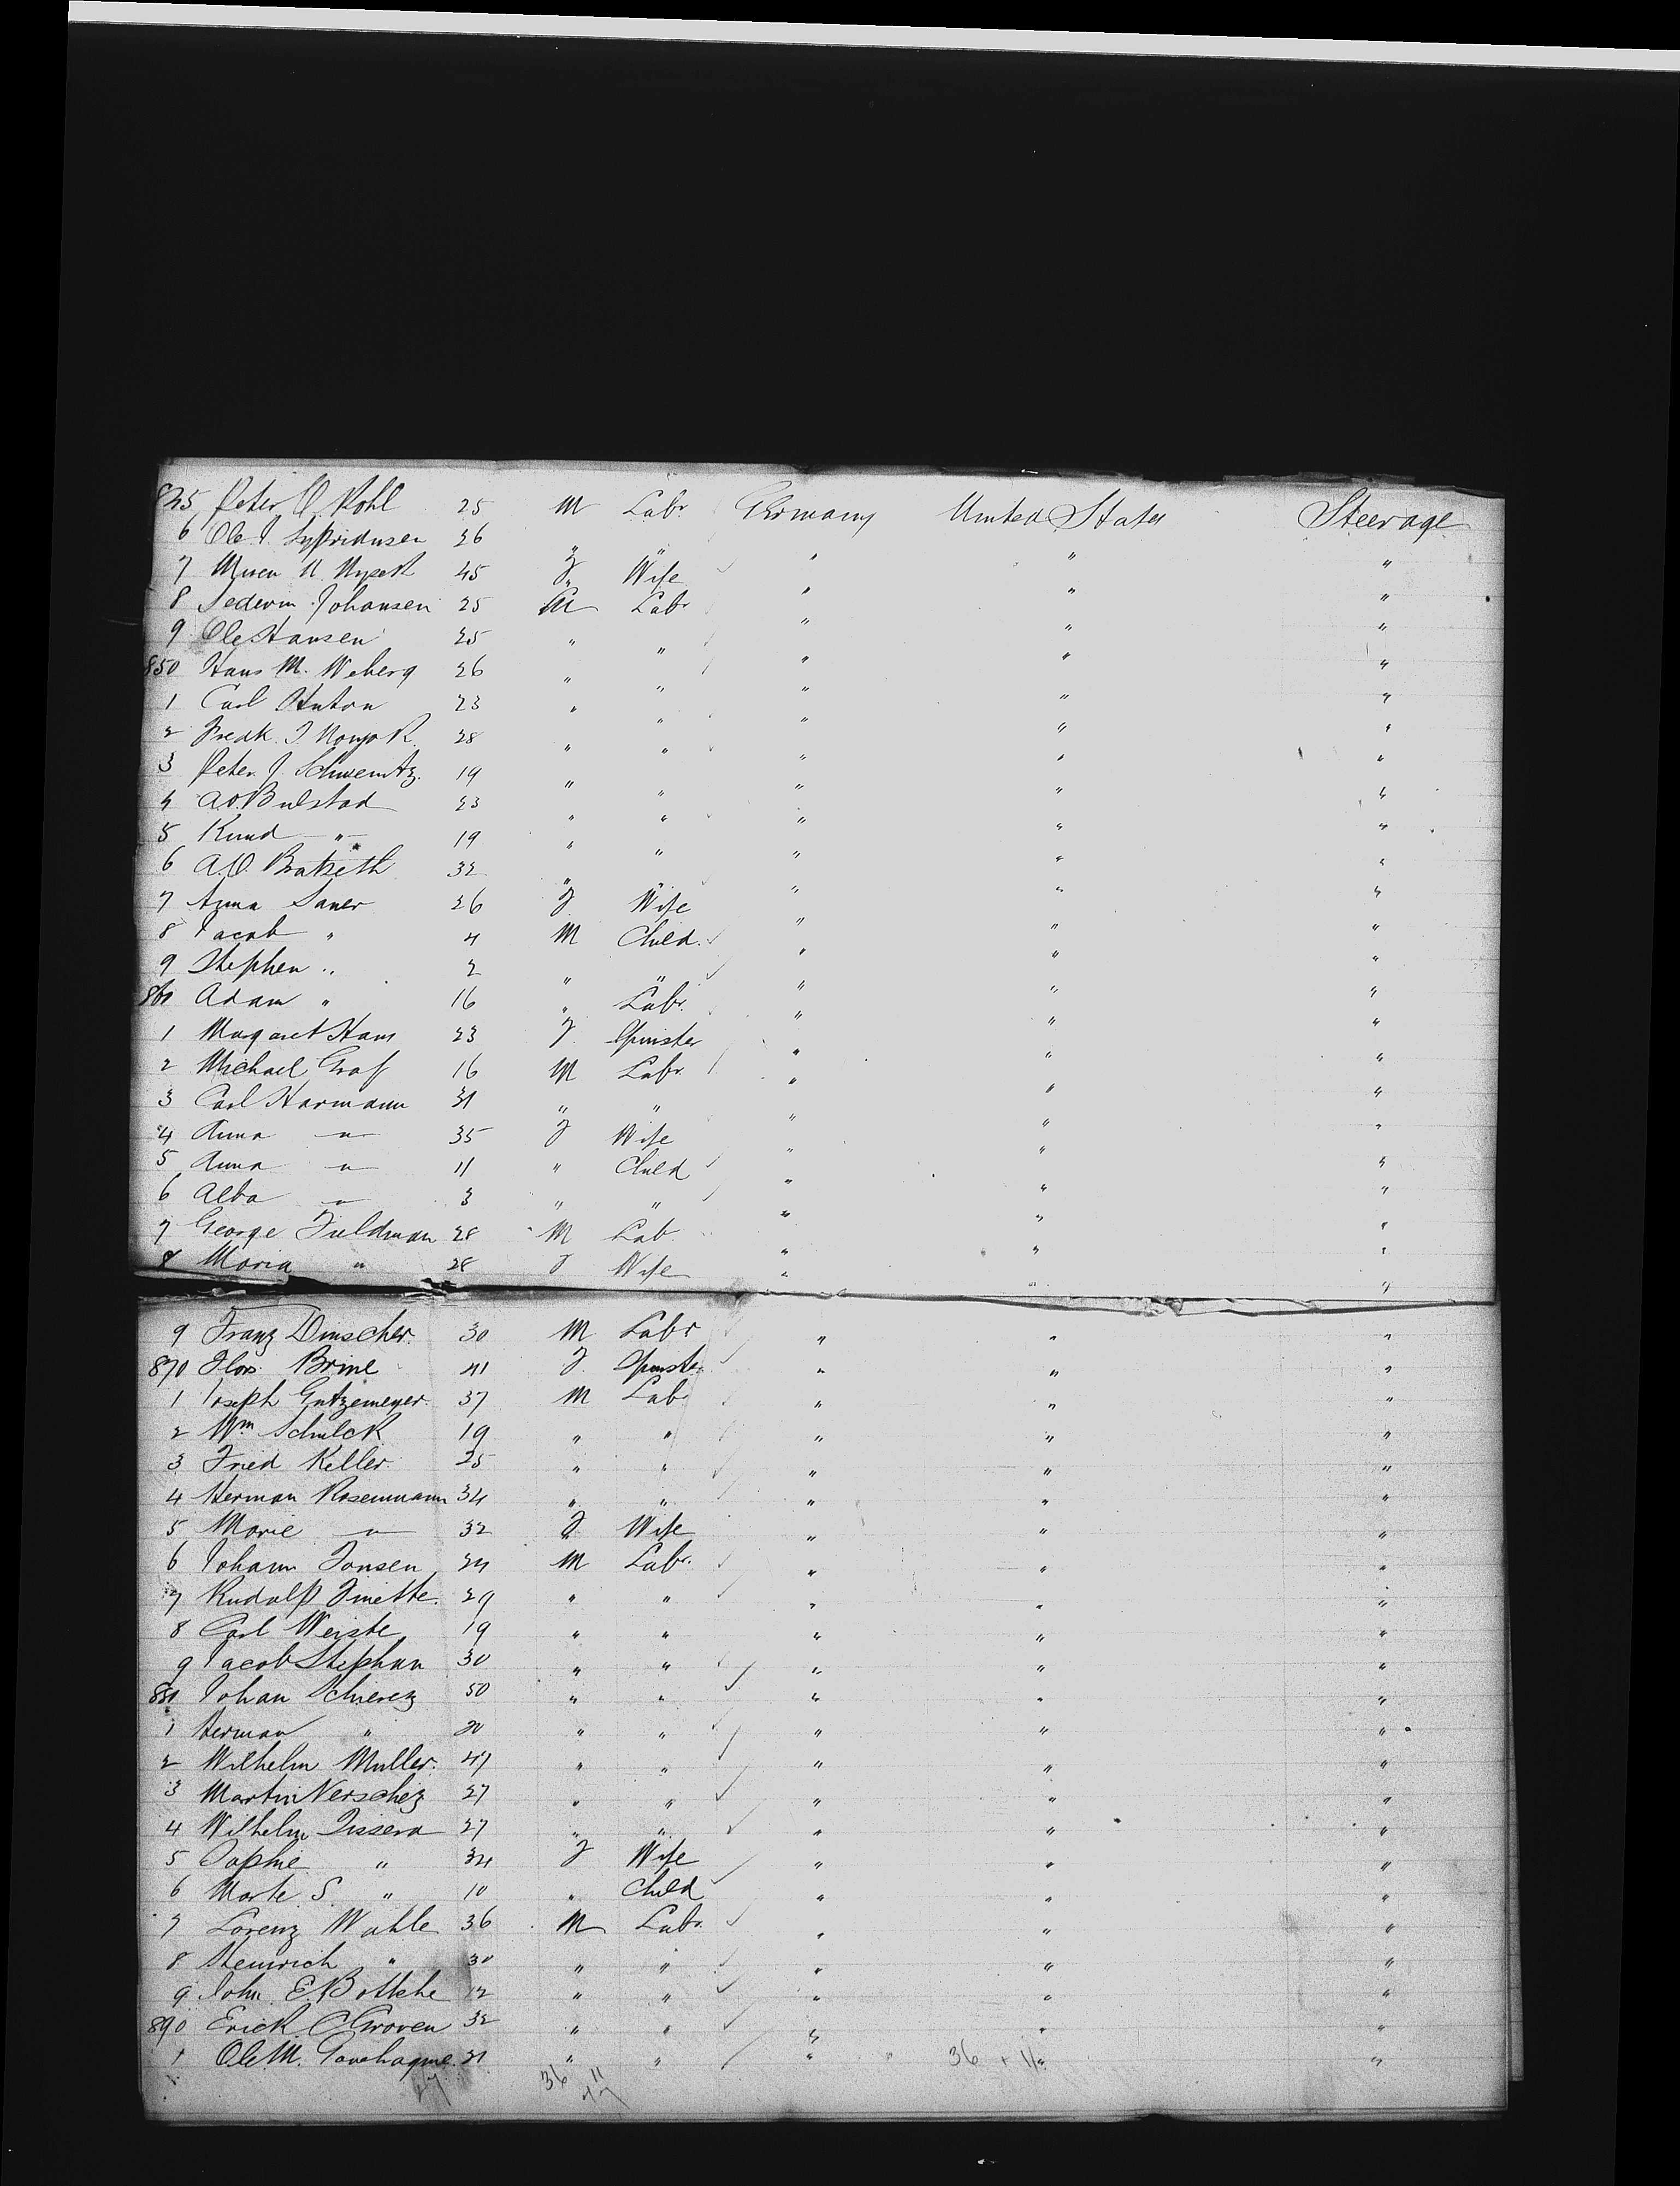 845 Peter O Kohl 25 M Labr Germany United States Steerage
6 Ole J. 26 " " " " "
7 N. 45 F Wife " " "
8 Johansen 25 M Labr " " "
9 Ole Hansen 25 " " " " "
850 Hans M. Weberg 26 " " " " "
1 Carl Anton 23 " " " " "
2 Fredk. J. 28 " " " " "
3 Peter J. 19 " " " " "
4 A.O. Bulstad 23 " " " " "
5 Knud " 19 " " " " "
6 A.O. Bratseth 32 " " " " "
7 Anna Saner 26 F Wife " " "
8 Jacob " 4 M Child " " "
9 Stephen " 2 " " " " "
860 Adam " 16 " Labr. " " "
1 Margaret Hans 23 F Spinster " " "
2 Michael Graf 16 M Labr. " " "
3 Carl Harmann 31 " " " " "
4 Anna " 35 F Wife " " "
5 Anna " 11 " Child " " "
6 Alba " 3 " " " " "
7 George Fuldman 28 M Lab " " "
8 Maria " 28 F Wife " " "
9 Franz Dinscher 30 M Labr " " "
870 Brine 41 F Spinster " " "
1 Joseph Gutzemeyer 37 M Lab " " "
2 Wm Schulck 19 " " " " "
3 Fried Keller 25 " " " " "
4 Herman Rosenmann 34 " " " " "
5 Marie " 32 F Wife " " "
6 Johann Jonsen 24 M Labr. " " "
7 Rudolf Finette 29 " " " " "
8 Carl Weiste 19 " " " " "
9 Jacob Stephan 30 " " " " "
880 Johan Schierez 50 " " " " "
1 Herman " 20 " " " " "
2 Wilhelm Muller 47 " " " " "
3 Martin Verschez 27 " " " " "
4 Wilhelm Tissera 27 " " " " "
5 Sophie " 34 F Wife " " "
6 Marte S. " 10 " Child " " "
7 Lorenz Wahle 36 M Labr. " " "
8 Heinrich " 30 " " " " "
9 John E. Bottche 12 " " " " "
890 Erick C Groven 32 " " " " "
1 Ole M. 21 " " " " "
36 + 11
36 11
47